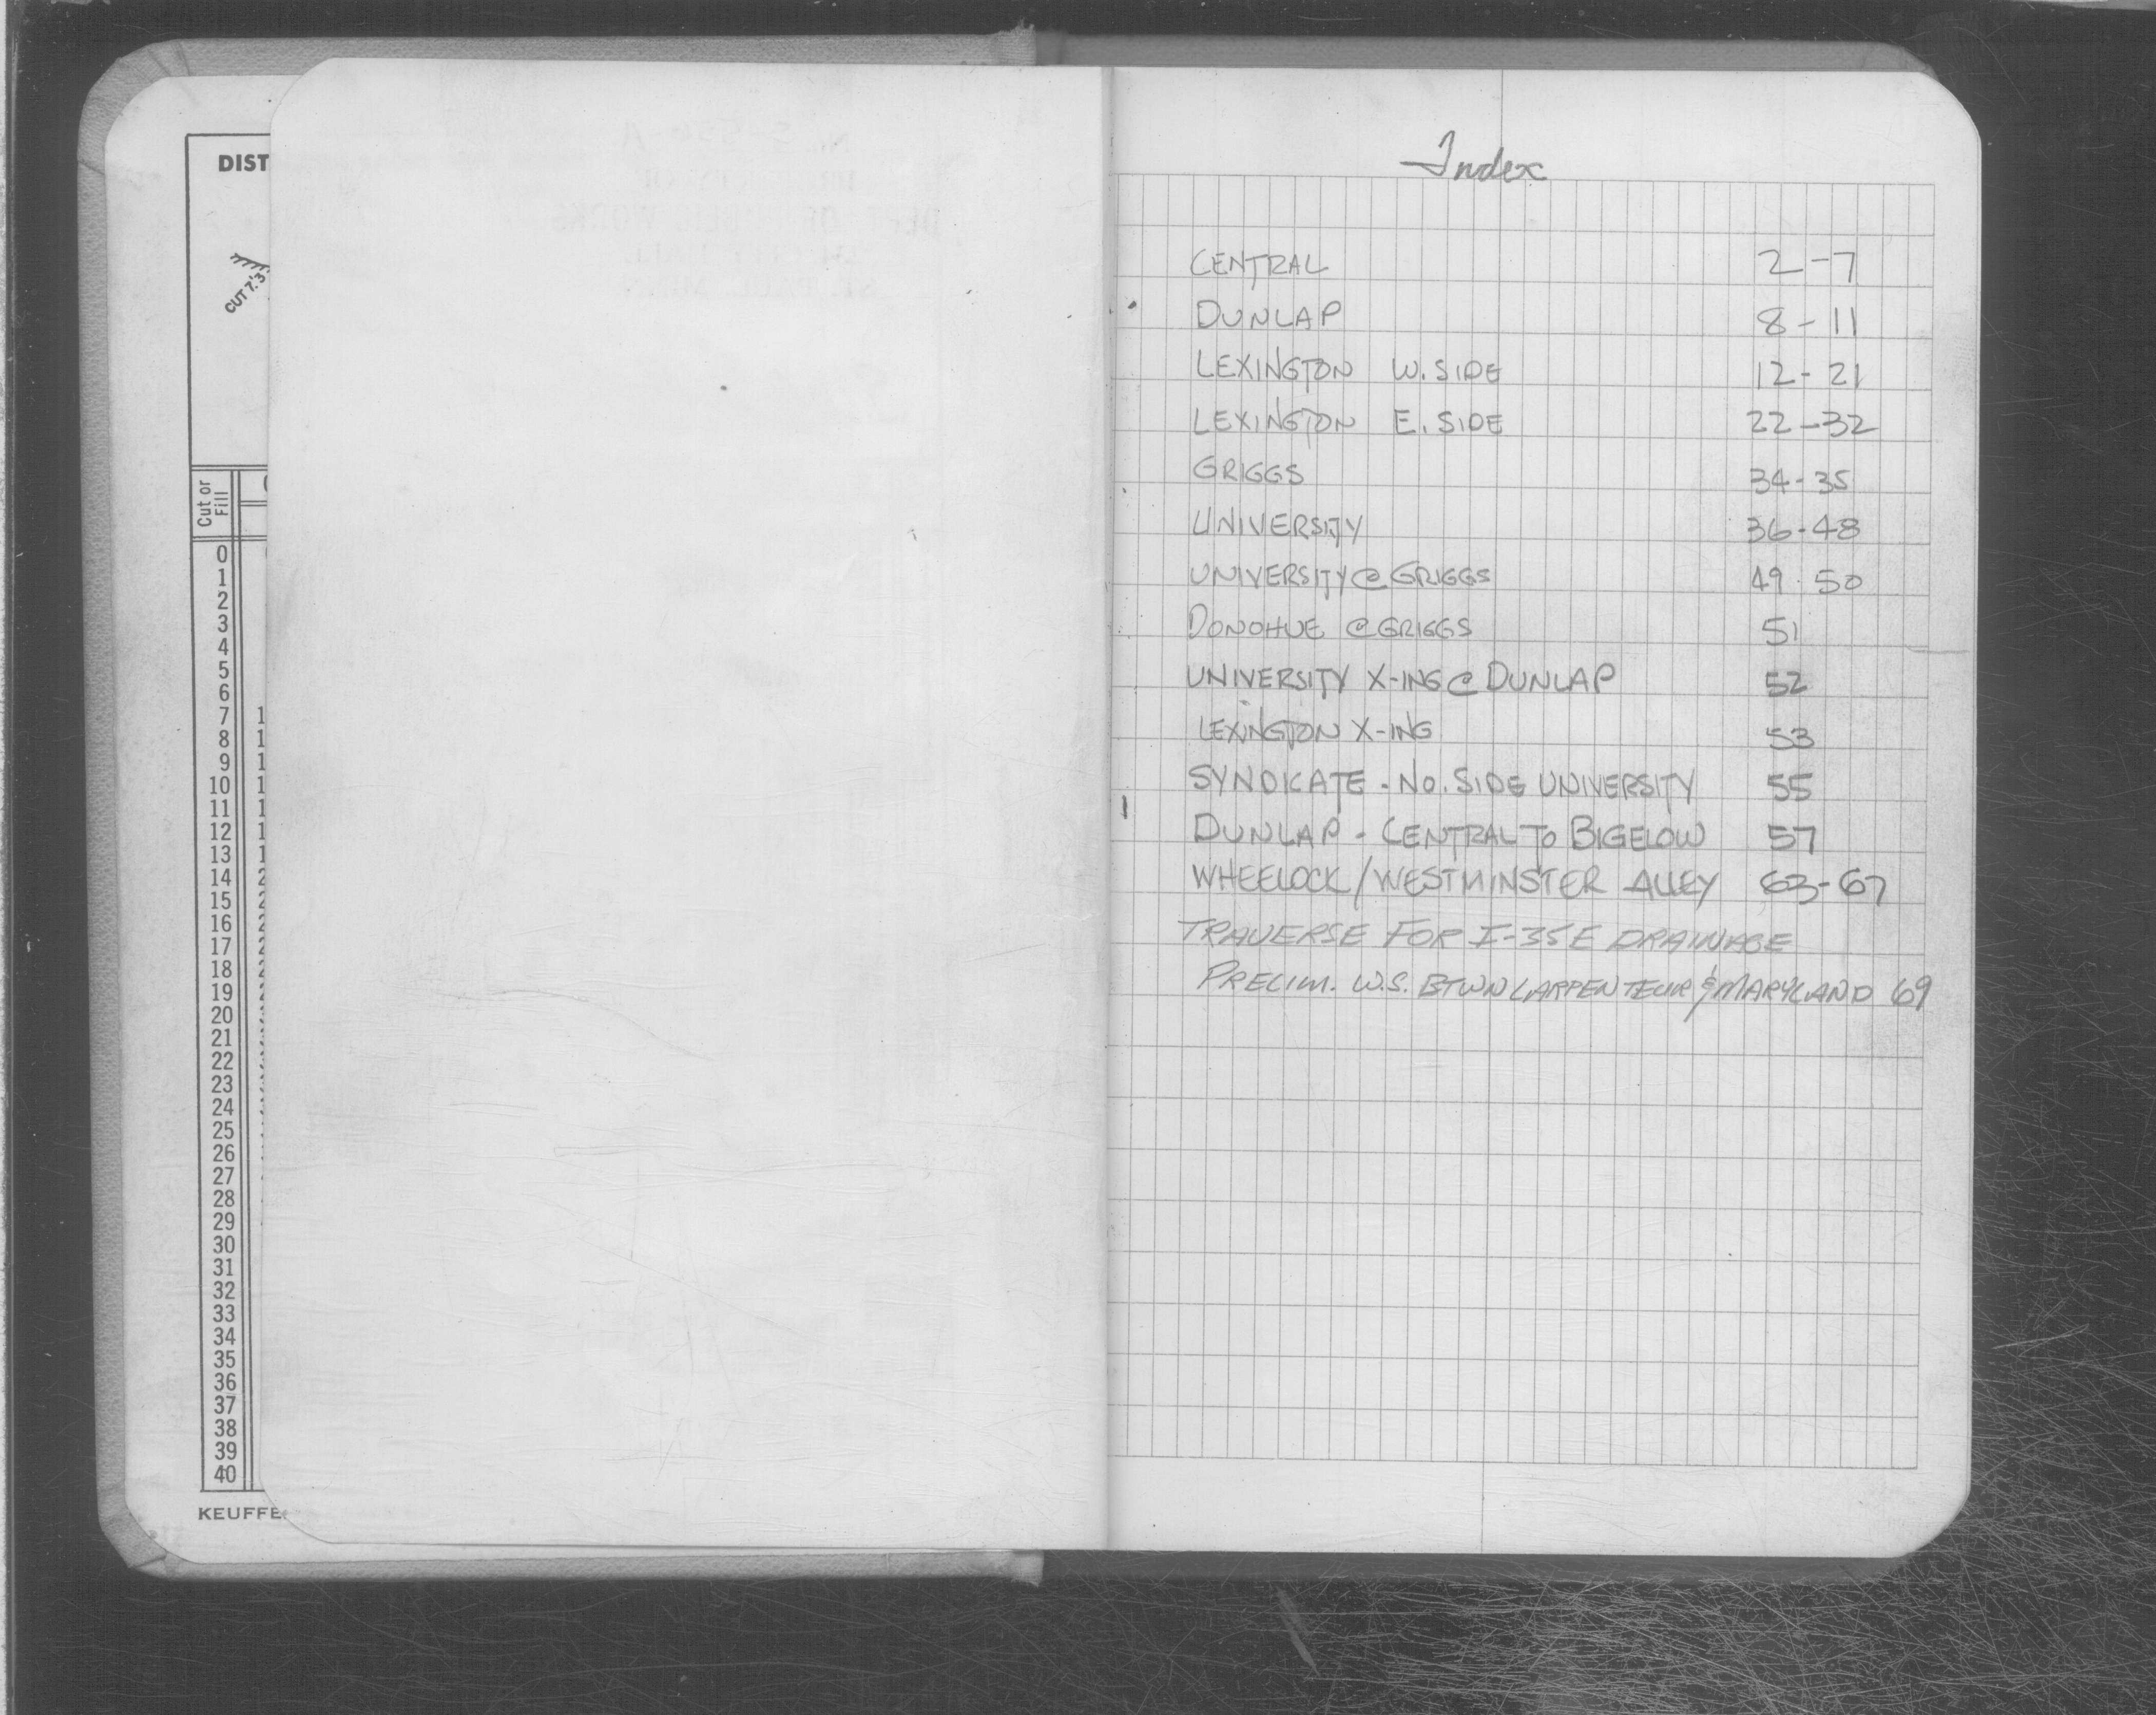 DIST
CUT 7.3'
Cut or
Fill
0
1
2
3
4
5
6
7 1
8 1
9 1
10 1
11 1
12 1
13 1
14 2
15 2
16 2
17 2
18 2
19 2
20
21
22
23
24
25
26
27
28
29
30
31
32
33
34
35
36
37
38
39
40
KEUFFE
Index
CENTRAL 2-7
DUNLAP 8-11
LEXINGTON W. SIDE 12-21
LEXINGTON E. SIDE 22-32
GRIGGS 34-35
UNIVERSITY 36-48
UNIVERSITY @ GRIGGS 49-50
DONOHUE @ GRIGGS 51
UNIVERSITY X-ING @ DUNLAP 52
LEXINGTON X-ING 53
SYNDICATE - NO. SIDE UNIVERSITY 55
DUNLAP - CENTRAL TO BIGELOW 57
WHEELOCK/WESTMINSTER ALLEY 63-67
TRAVERSE FOR I-35E DRAINAGE
PRELIM. W.S. BTWN LARPENTEUR & MARYLAND 69